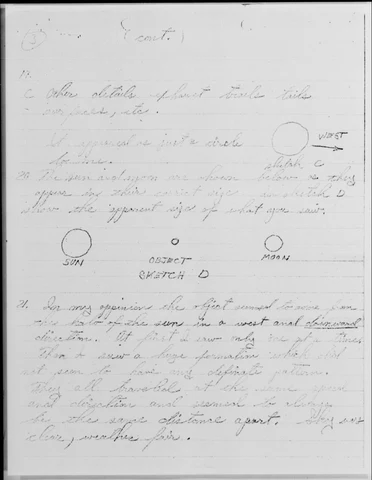 (cont.)
19.
C Other details exhaust trails tails
etc.
It appeared as just a circle
to me.
WEST
sketch C
20. The sun and moon are shown below as they
appear in their correct size in sketch D
show the apparent size of what you saw.
SUN
OBJECT
MOON
SKETCH D
21. In my oppinion the object seemed to come from
the halo of the sun in a west and downward
direction. At first I saw only one at a time.
Then I saw a large formation which did
not seem to have any definate pattern.
They all traveled at the same speed
and direction and seemed to always
be the same distance apart. Sky was
clear, weather fair.